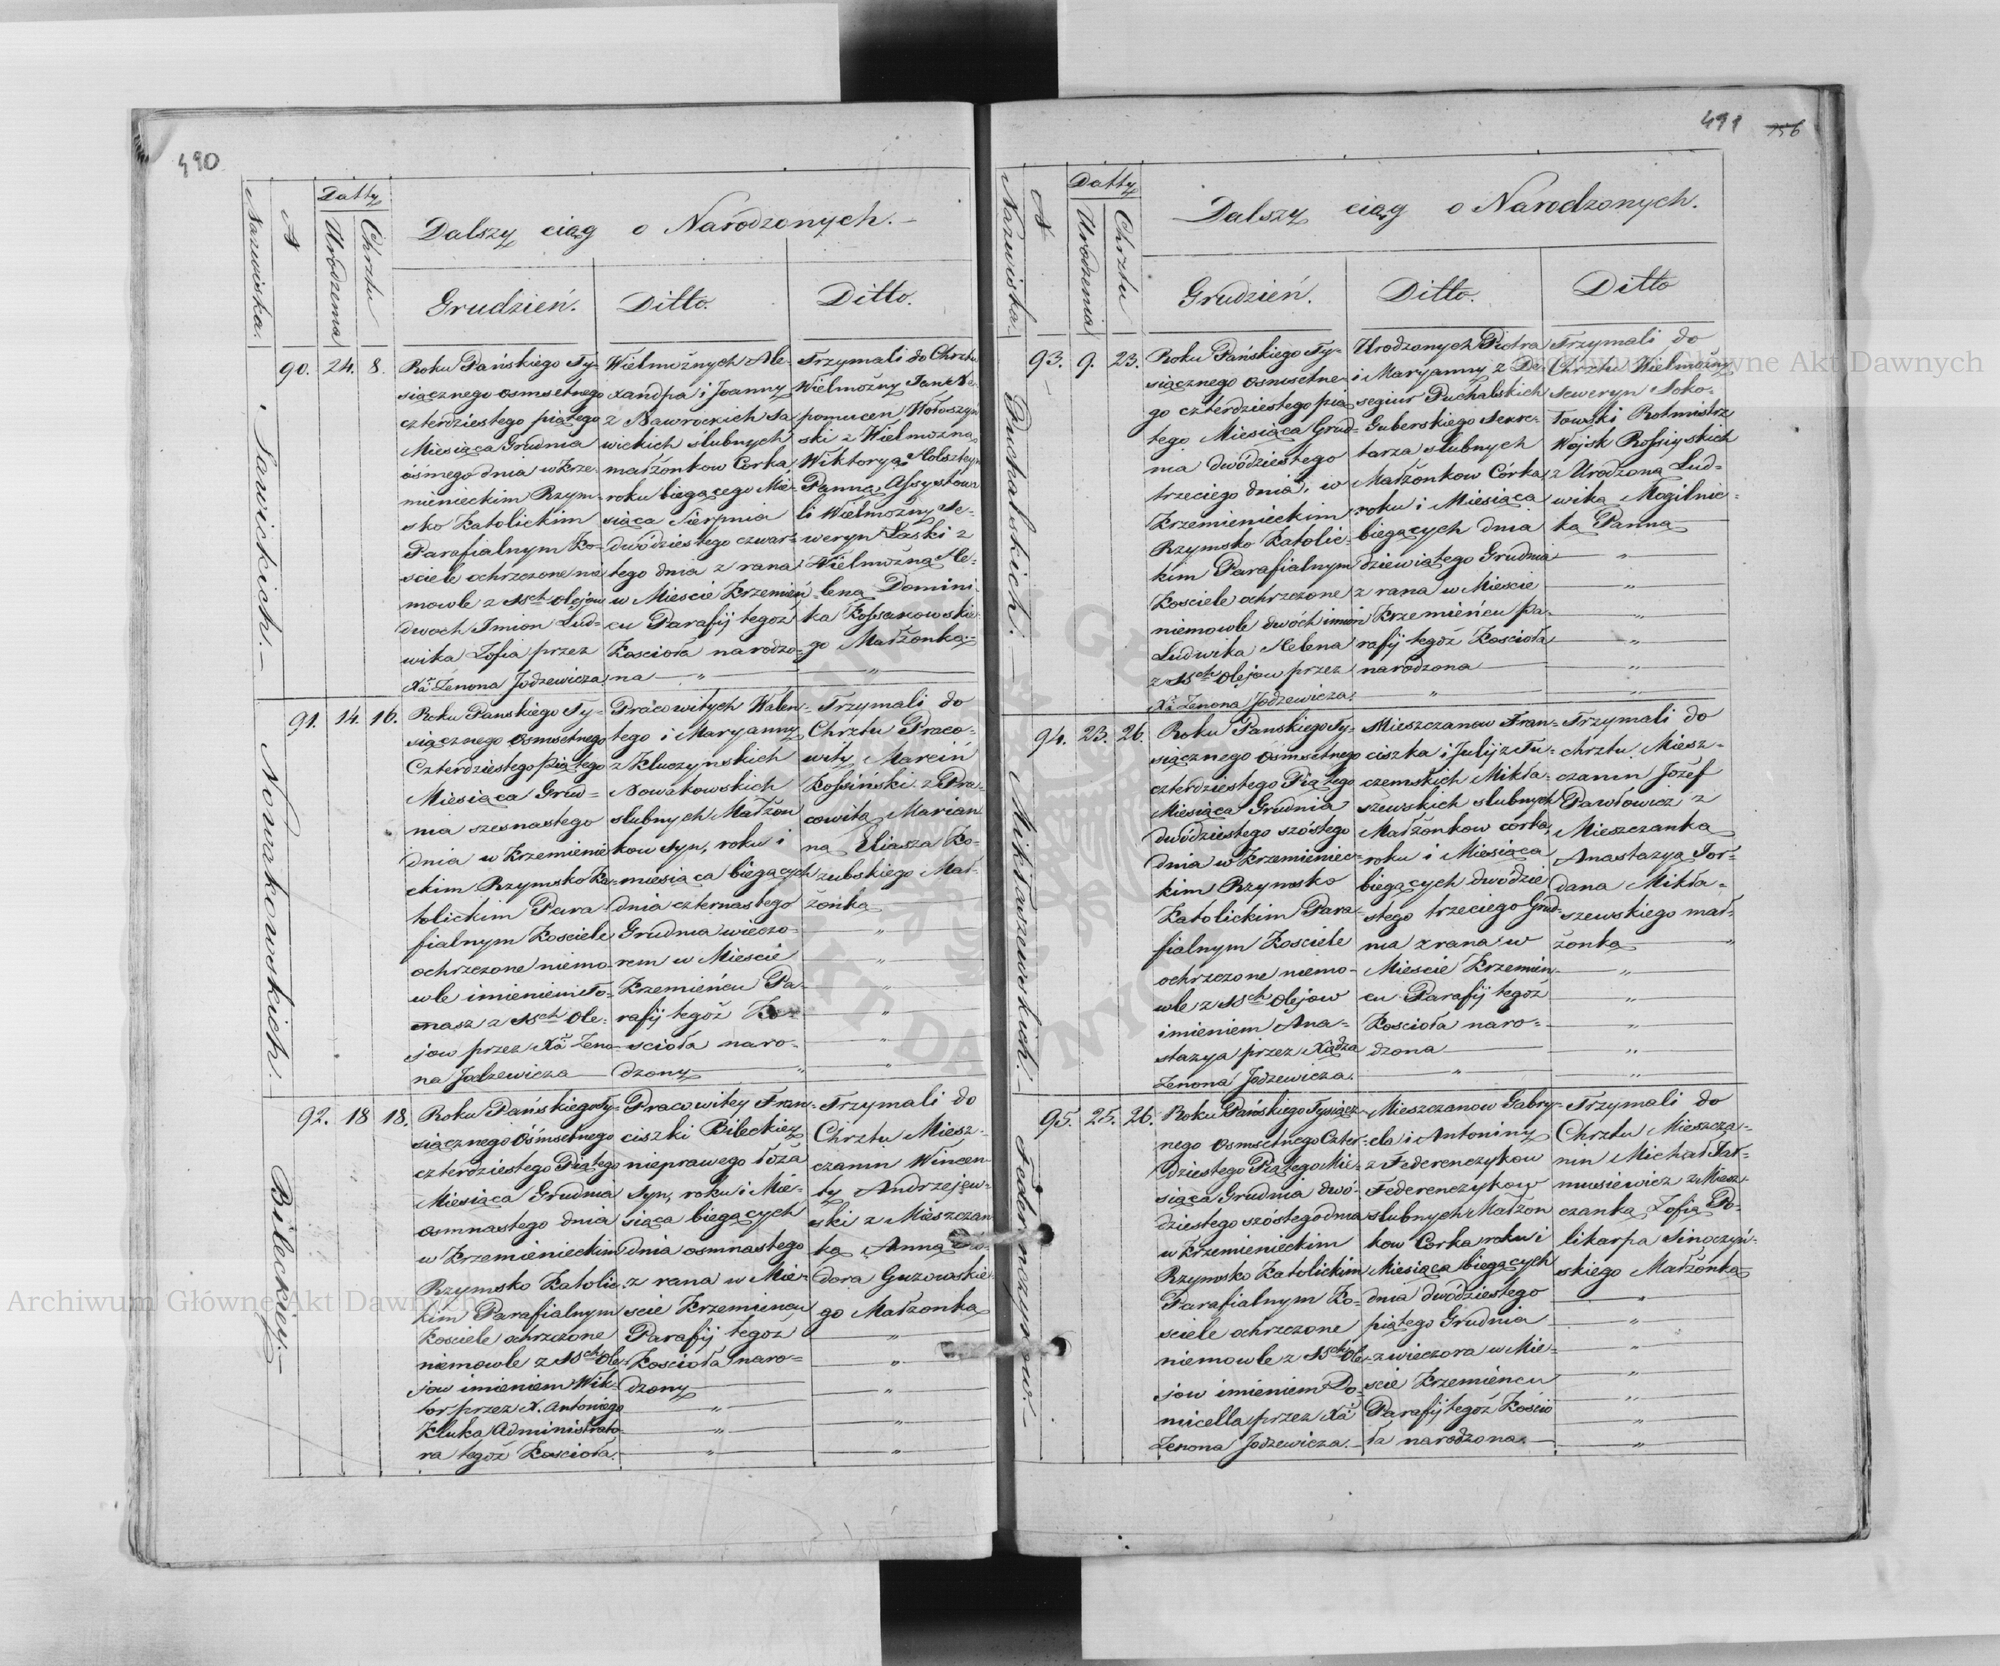 490
Dalszy ciąg o Narodzonych.
Nazwiska.
N
Datty
Urodzenia
Chrztu
Grudzień.
Ditto.
Ditto.
Sawickich.
90.
24.
8.
Roku Pańskiego Ty-
siącznego osmsetnego
czterdziestego piątego
Miesiąca Grudnia
ósmego dnia w Krze-
mienieckim Rzym-
sko Katolickim
Parafialnym Ko-
sciele ochrzczone nie
mowle z SSch olejow
dwoch Imion Lud-
wika Zofia przez
Xa Zenona Jodzewicza.
Wielmożnych Ale-
xandra i Joanny
z Nawrockich Sa
wickich ślubnych
małżonkow Corka,
roku biegącego Mie-
siąca Sierpnia
dwódziestego czwar-
tego dnia z rana
w Miescie Krzemień
cu Parafij tegoż
Kościoła narodzo-
na
Trzymali do Chrztu
Wielmożny Jan Ne-
pomucen Wołoszyń
ski z Wielmożną
Wiktoryą Holszteyn
Panną Assystowa
li Wielmożny Se-
weryn Łaski z
Wielmożną He-
leną Domini-
ka Kossakowskie-
go Małżonką
Nowakowskich.
91.
14.
16.
Roku Panskiego Ty-
siącznego osmsetnego
Czterdziestego piątego
Miesiąca Grud-
nia szesnastego
dnia w Krzemienie
ckim Rzymsko Ka-
tolickim Para
fialnym Kosciele
ochrzczone niemo-
wle imieniem To-
masz z SSch Ole-
jow przez Xa Zeno
na Jodzewicza
Pracowitych Walen-
tego i Maryanny
z Kluczynskich
Nowakowskich
slubnych Małżon
kow syn, roku i
miesiąca biegących
dnia czternastego
Grudnia wieczo-
rem w Miescie
Krzemieńcu Pa-
rafij tegoż Ko-
scioła naro-
dzony
Trzymali do
Chrztu Praco-
wity Marcin
Kossiński z Pra-
cowitą Marian
ną Eliasza Ko-
zubskiego Mał-
żonką
Bileckiey.
92.
18
18.
Roku Pańskiego Ty-
siącznego Osmsetnego
czterdziestego Piątego
Miesiąca Grudnia
osmnastego dnia
w Krzemienieckim
Rzymsko Katolic-
kim Parafialnym
Kosciele ochrzczone
niemowle z SSch Ole
jow imieniem Wik-
tor przez X. Antoniego
Kluka Administrato-
ra tegoż Koscioła.
Pracowitey Fran-
ciszki Bileckiey
nieprawego łoża
Syn, roku i Mie-
siąca biegących
dnia osmnastego
z rana w Mie-
scie Krzemieńcu
Parafij tegoż
Koscioła naro-
dzony
Trzymali do
Chrztu Miesz-
czanin Wincen
ty Andrzejew-
ski z Mieszczan
ką Anną
dora Guzowskie
go Małżonką
491
156
Dalszy ciąg o Narodzonych.
Nazwiska.
N
Datty
Urodzenia
Chrztu
Grudzień.
Ditto.
Ditto
Puchalskich.
93.
9.
23.
Roku Pańskiego Ty-
siącznego osmsetne-
go czterdziestego pią
tego Miesiąca Grud-
nia dwódziestego
trzeciego dnia, w
Krzemienieckim
Rzymsko Katolic-
kim Parafialnym
Kosciele ochrzczone
niemowle dwóch imion
Ludwika Helena
z SSch olejow przez
Xa Zenona Jodzewicza.
Urodzonych Piotra
i Maryanny z De-
segiur Puchalskich
Guberskiego Sekre-
tarza slubnych
Małżonkow Córka,
roku i Miesiąca
biegących dnia
dziewiątego Grudnia
z rana w Miescie
Krzemieńcu Pa-
rafij tegoż Koscioła
narodzona
Trzymali do
Chrztu Wielmożny
Seweryn Soko-
łowski Rotmistrz
Wojsk Rossiyskich
z Urodzoną Lud-
wiką Mogilnic-
ką Panną
Mikłaszewskich.
94.
23.
26.
Roku Panskiego Ty-
siącznego osmsetnego
czterdziestego Piątego
Miesiąca Grudnia
dwódziestego szóstego
dnia w Krzemieniec-
kim Rzymsko
Katolickim Para-
fialnym Kosciele
ochrzczone niemo-
wle z SSch olejow
imieniem Ana-
stazya przez Xiądza
Zenona Jodzewicza.
Mieszczanow Fran-
ciszka i Julij z Tu-
czemskich Mikła-
szewskich slubnych
Małżonkow corka,
roku i Miesiąca
biegących dwódzie
stego trzeciego Grud-
nia z rana w
Miescie Krzemień-
cu Parafij tegoż
Koscioła naro-
dzona
Trzymali do
chrztu Miesz-
czanin Józef
Pawłowicz z
Mieszczanką
Anastazyą Jor-
dana Mikła-
szewskiego mał-
żonką
Federenczykow.
95.
25.
26.
Roku Pańskiego Tysiącz-
nego osmsetnego Czter-
dziestego Piątego Mie-
siąca Grudnia dwó-
dziestego szóstego dnia
w Krzemienieckim
Rzymsko Katolickim
Parafialnym Ko-
sciele ochrzczone
niemowle z SSch Ole-
jow imieniem Do-
micella przez Xa
Zenona Jodzewicza.
Mieszczanow Gabry-
ela i Antoniny
z Federenczykow
Federenczykow
slubnych Małżon
kow Corka roku i
Miesiąca biegących
dnia dwódziestego
piątego Grudnia
z wieczora w Mie-
scie Krzemieńcu
Parafij tegoż Koscio
ła narodzona.
Trzymali do
Chrztu Mieszcza-
nin Michał Jar-
musiewicz z Miesz-
czanką Zofią Po-
likarpa Sinoczyń-
skiego Małżonką
Archiwum Główne Akt Dawnych
Archiwum Główne Akt Dawnych